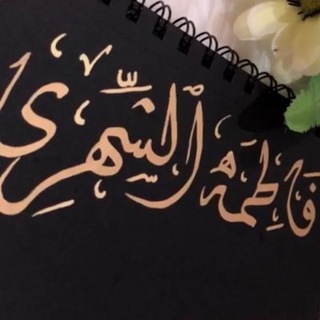 فاطمه الشهري